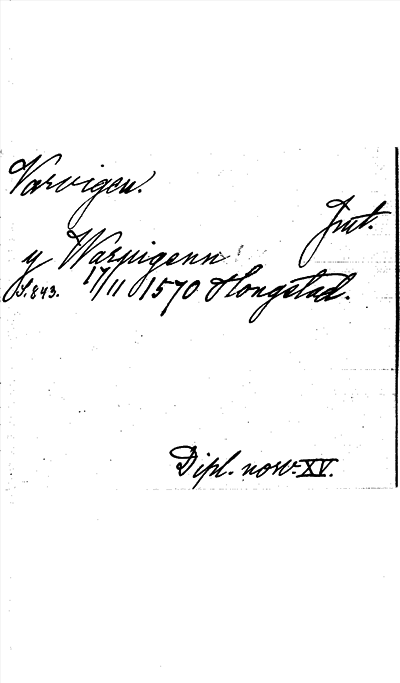 Varvigen.
Jmt.
y Warpigenn
S.843. 17/11 1570 Hongstad.
Dipl. norv. XV.